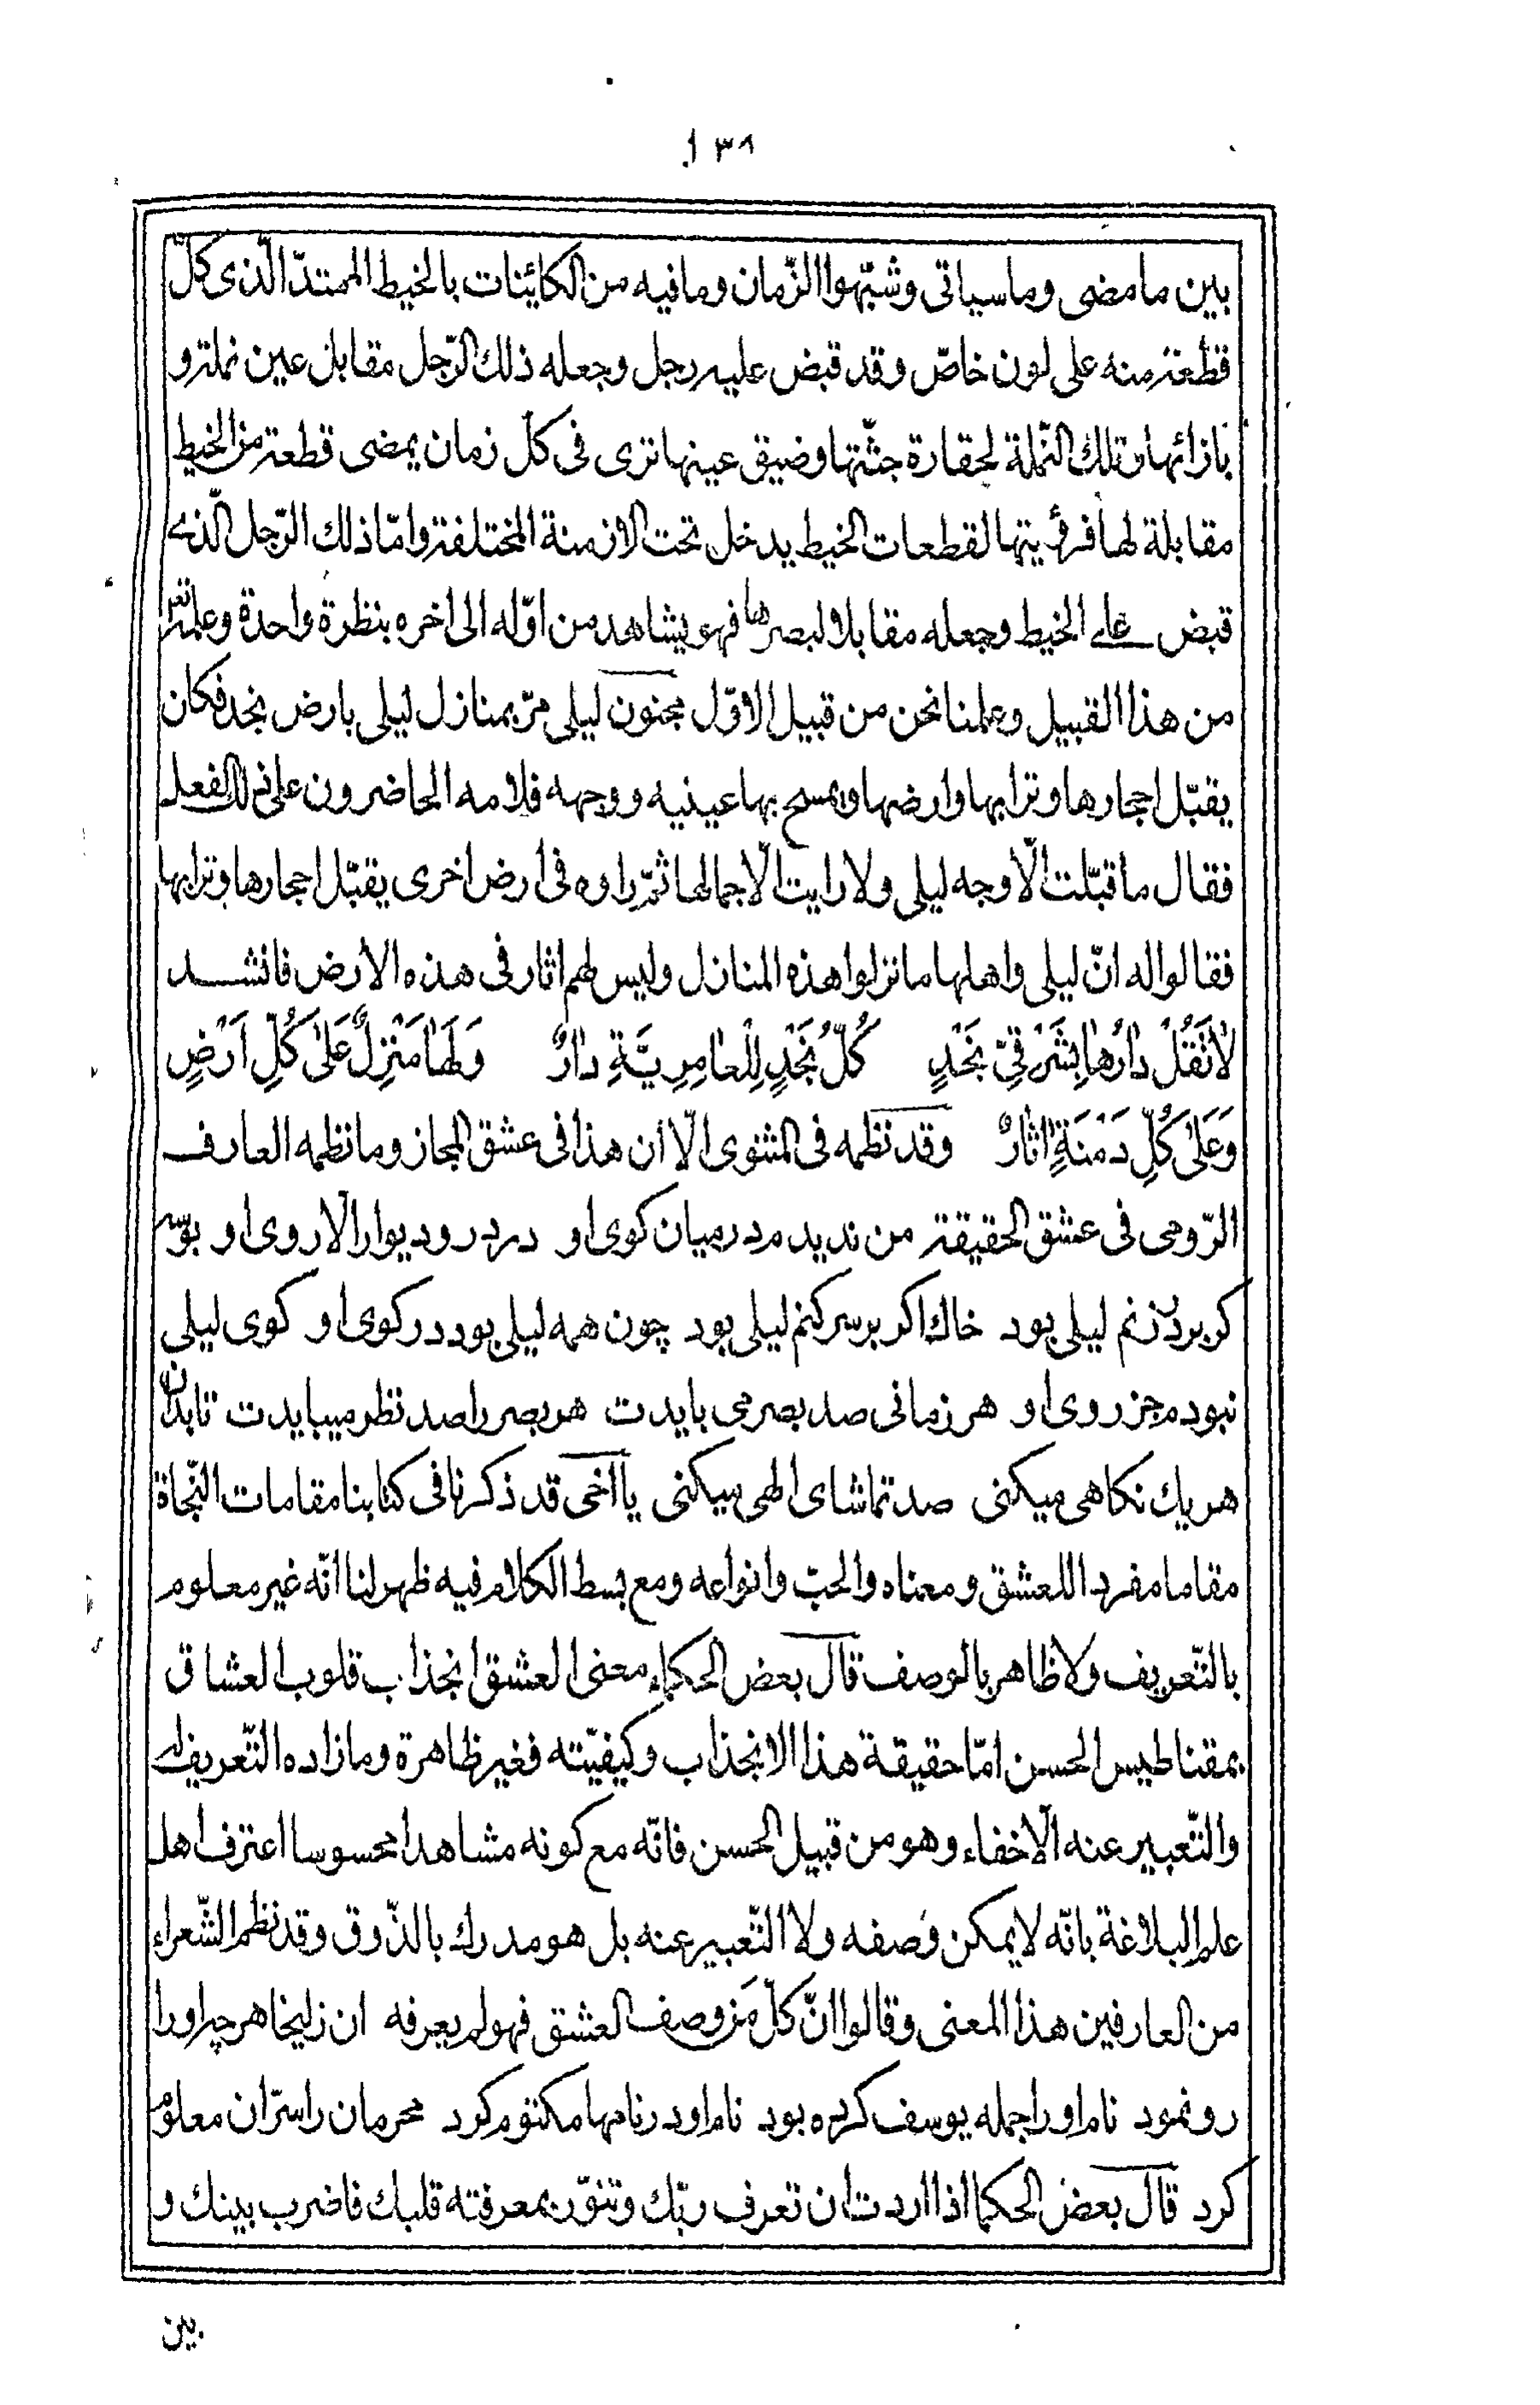 ١٣٨
بين ما مضى وما سياتى وشبّهوا الزّمان وما فيه من الكائينات بالخيط الممتدّ الّذى كلّ
قطعة منه على لون خاصّ وقد قبض عليه رجل وجعله ذلك الرّجل مقابل عين نملة و
بازائها وتلك النّملة لحقارة جثّتها وضيق عينها ترى فى كلّ زمان يمضى قطعة من الخيط
مقابلة لها فرؤيتها لقطعات الخيط يدخل تحت الازمنة المختلفة وامّا ذلك الرّجل الّذى
قبض على الخيط وجعله مقابلا لبصرها فهو يشاهد من اوّله الى اخره بنظرة واحدة وعلمه تع
من هذا القبيل وعلمنا نحن من قبيل الاوّل مجنون ليلى مرّ بمنازل ليلى بارض نجد فكان
يقبّل احجارها وترابها وارضها ويمسح بها عينيه ووجهه فلامه الحاضرون على ذلك الفعل
فقال ما قبّلت الّا وجه ليلى ولا رايت الّا جمالها ثمّ راوه فى ارض اخرى يقبّل احجارها وترابها
فقالوا له انّ ليلى واهلها ما نزلوا هذه المنازل وليس لهم اثار فى هذه الارض فانشد
لَا تَقُلْ دٰارُهٰا بِشَرْقِىِّ نَجْدٍ كُلُّ نَجْدٍ لِلْعٰامِرِيَّةِ دٰارٌ وَلَهٰا مَنْزِلٌ عَلىٰ كُلِّ اَرْضٍ
وَعَلىٰ كُلِّ دَمْنَةٍ اٰثٰارٌ وقد نظمه فى المثنوى الّا أن هذا فى عشق المجاز وما نظمه العارف
الرّومى فى عشق الحقيقة من نديدم در ميان كوى او در در و ديوار الا روى او بوسه
كر بر در زنم ليلى بود خاك اكر بر سر كنم ليلى بود چون همه ليلى بود در كوى او كوى ليلى
نبودم جز روى او هر زمانى صد بصر مى بايدت هر بصر را صد نظر ميبايدت تا بدان
هر يك نكاهى ميكنى صد تماشاى الهى ميكنى يا اخى قد ذكرنا فى كتابنا مقامات النّجاة
مقاما مفردا للعشق ومعناه والحبّ وانواعه ومع بسط الكلام فيه ظهر لنا انّه غير معلوم
بالتّعريف ولا ظاهر بالوصف قال بعض الحكماء معنى العشق انجذاب قلوب العشاق
بمقناطيس الحسن امّا حقيقة هذا الانجذاب وكيفيّته فغير ظاهرة وما زاده التّعريف له
والتّعبير عنه الّا خفاء وهو من قبيل الحسن فانّه مع كونه مشاهدا محسوسا اعترف اهل
علم البلاغة بانّه لا يمكن وصفه ولا التّعبير عنه بل هو مدرك بالذّوق وقد نظم الشّعراء
من العارفين هذا المعنى وقالوا انّ كلّ مَن وصف العشق فهو لم يعرفه ان زليخا هرچه او را
رو نمود نام او را جمله يوسف كرده بود نام او در نامها مكتوم كرد محرمان را سرّ ان معلوم
كرد قال بعض الحكما اذا اردت ان تعرف ربّك وتنوّر بمعرفته قلبك فاضرب بينك و
بين